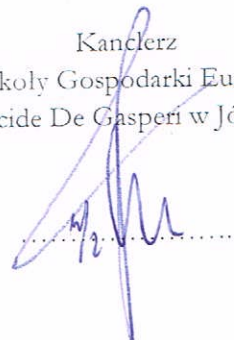 Kanclerz
koły Gospodarki Eu
cide De Gasperi w Jó
w/z